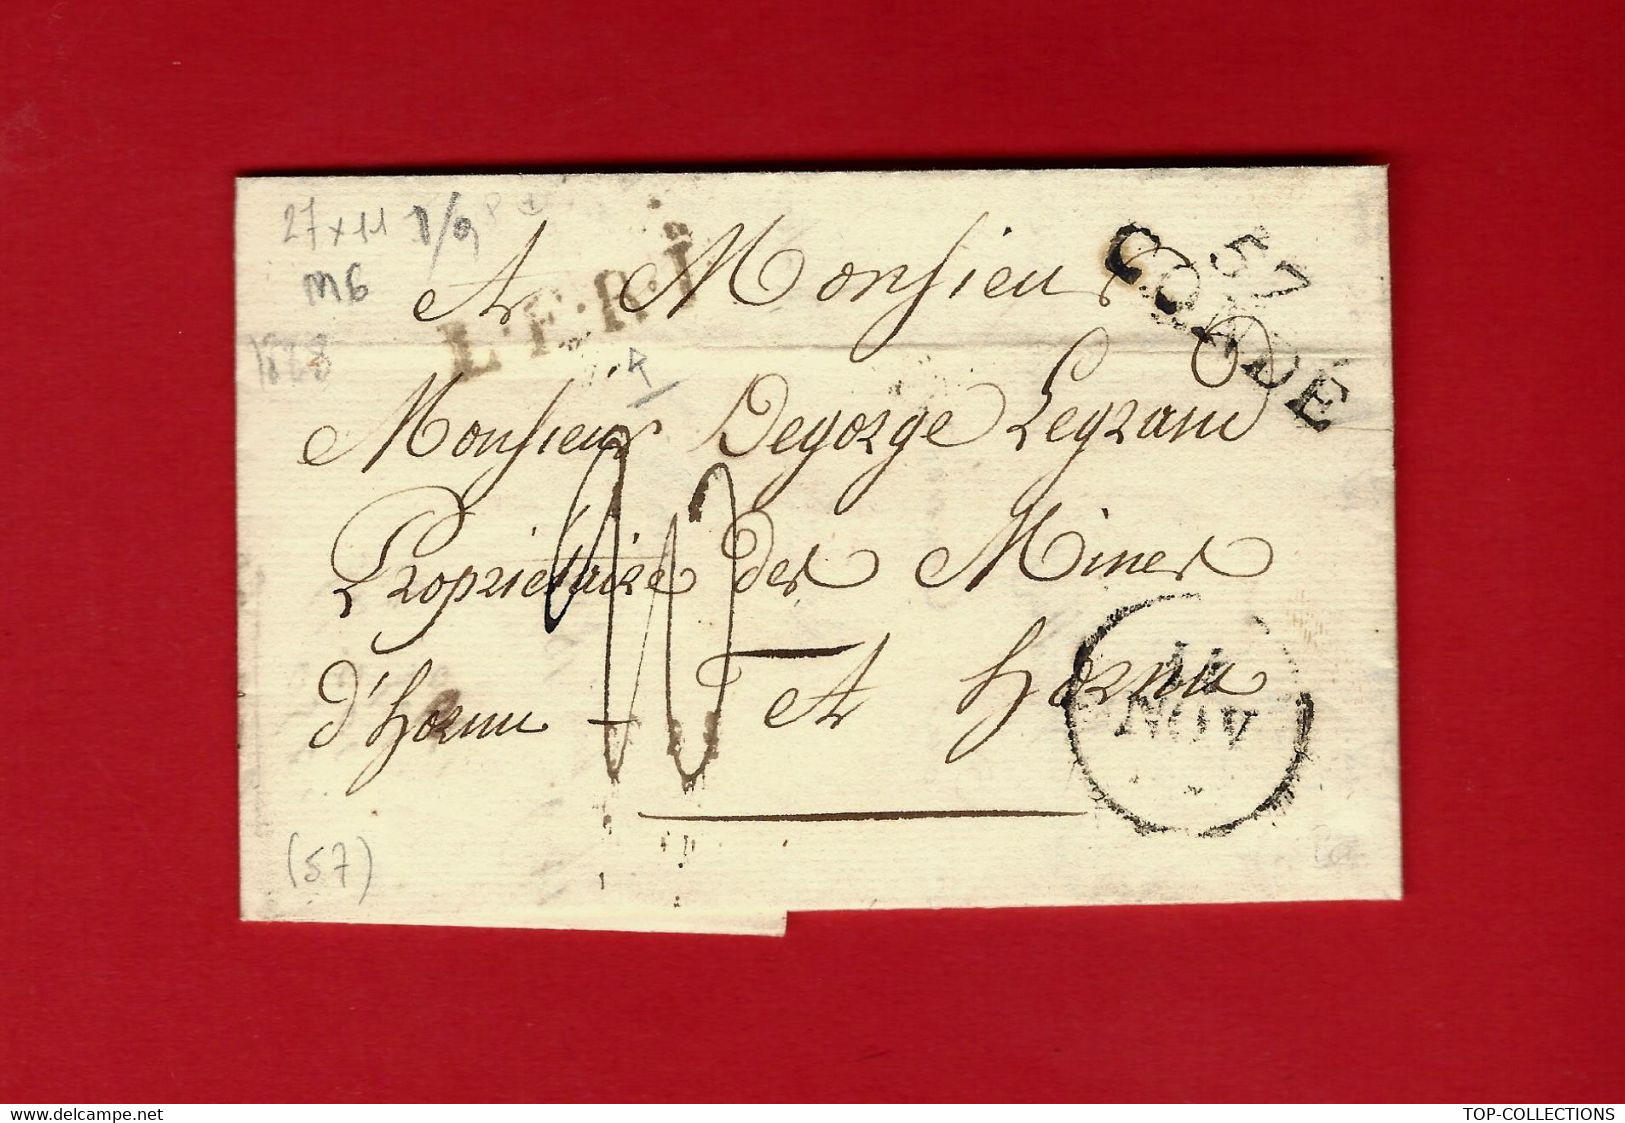 27 x 11
M6
1828
L.F.R.1
57
CONDÉ
A Monsieur
Monsieur Degorge Legrand
Propriétaire des Mines
d'hornu - A hornu
11
NOV
(57)
www.delcampe.net
TOP-COLLECTIONS